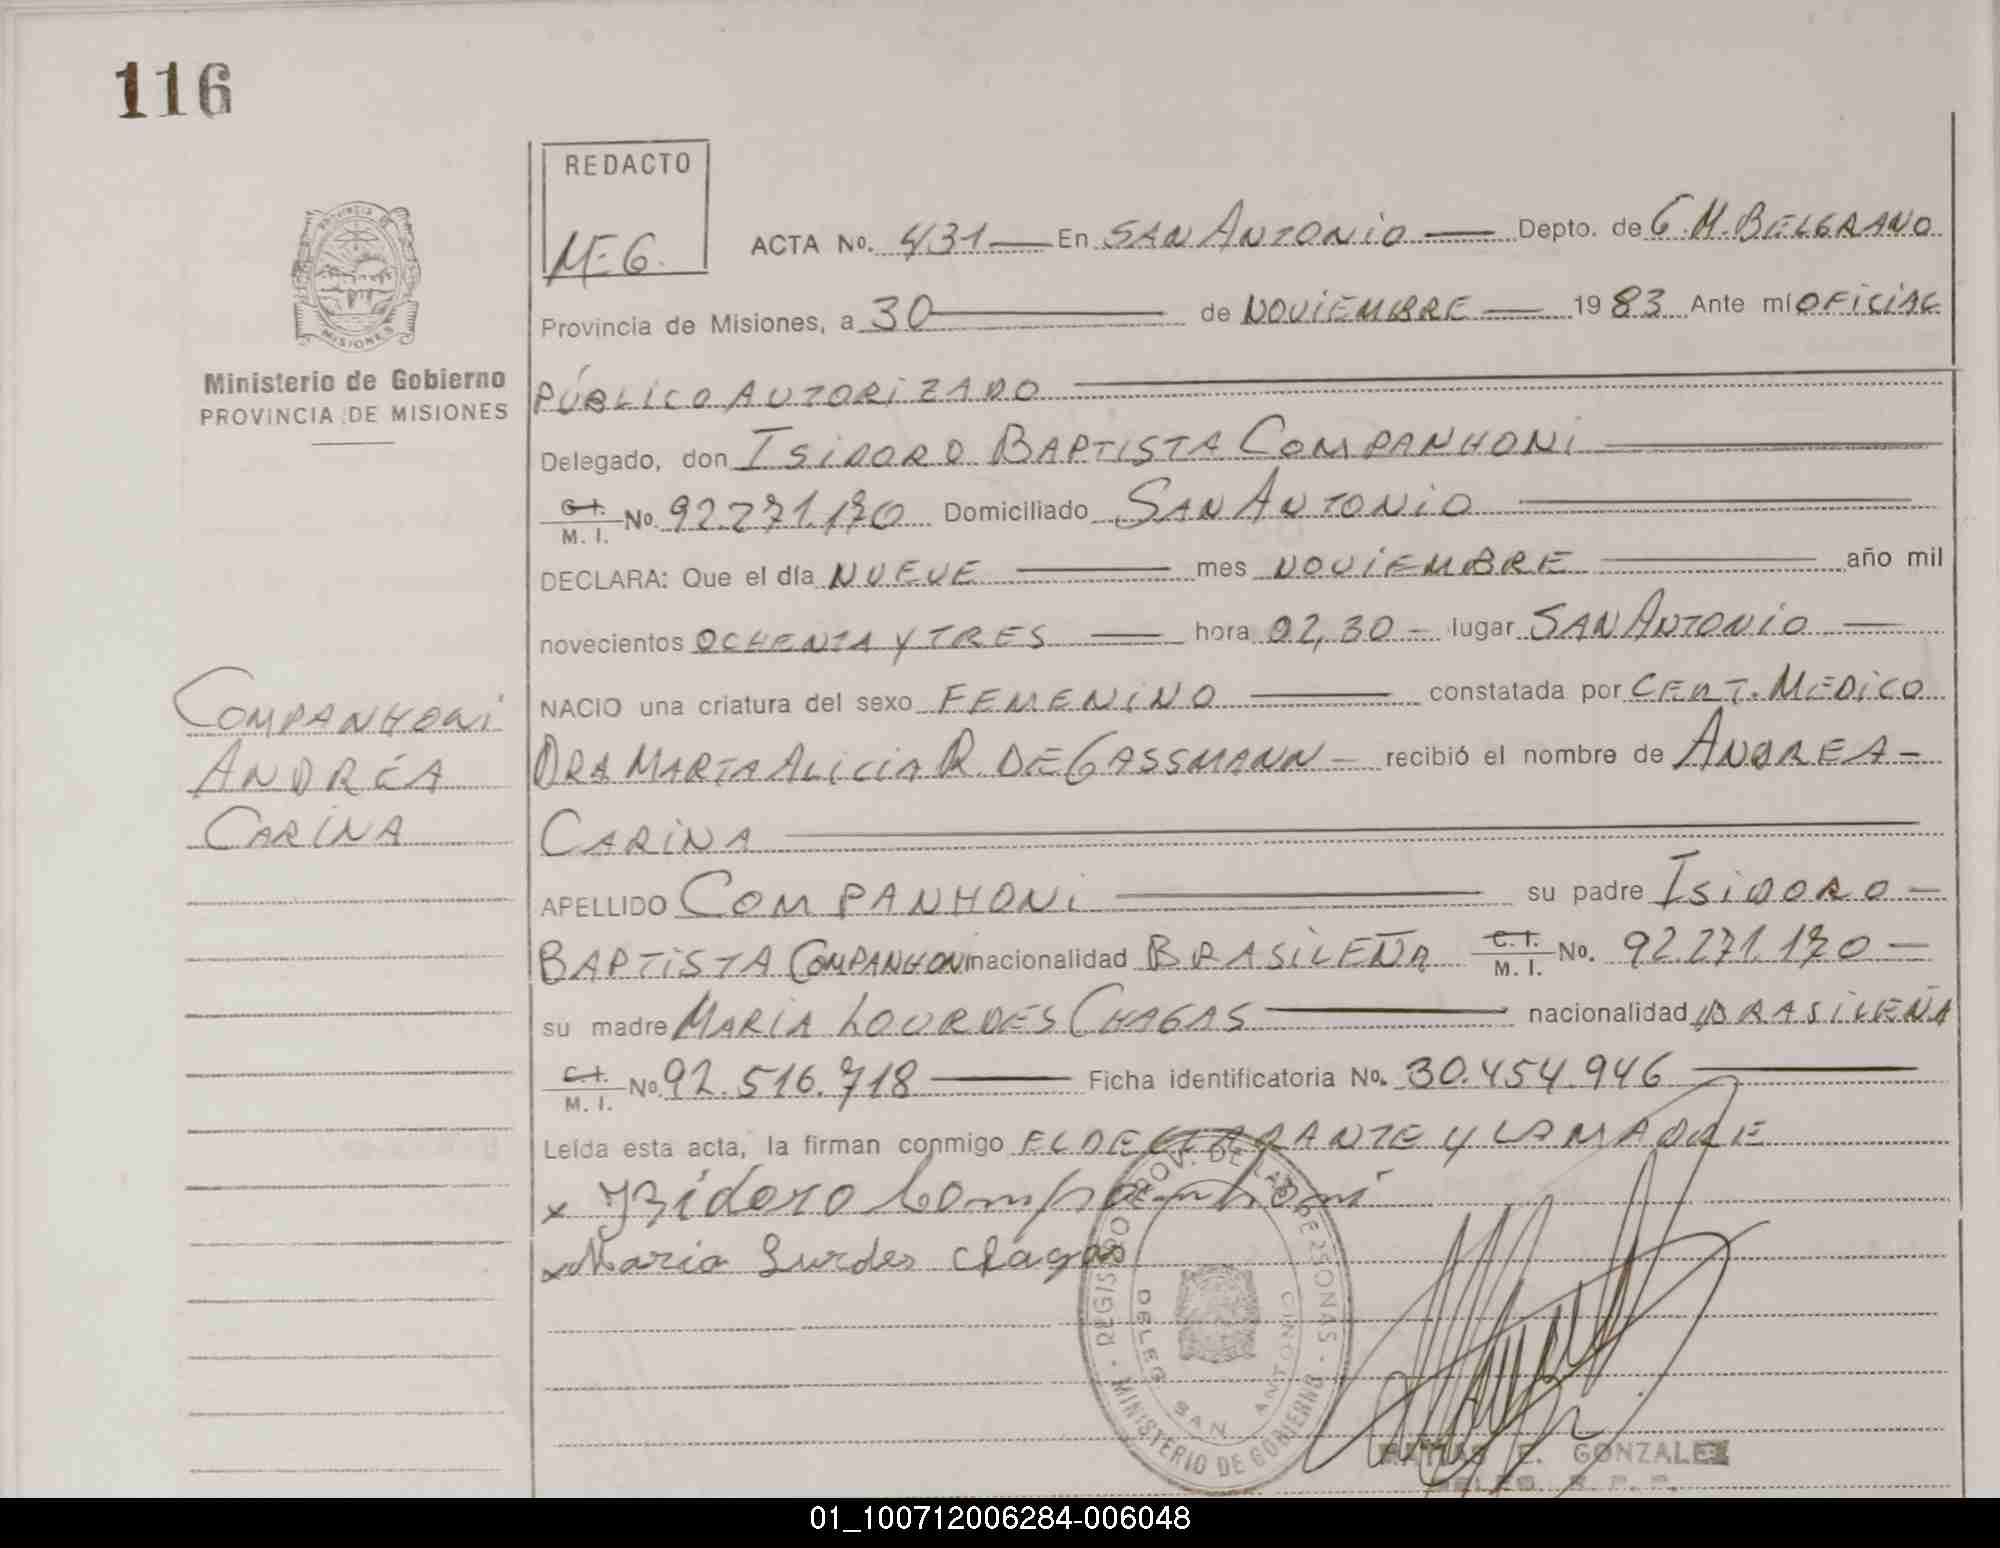 116
REDACTO
M.E.G.
ACTA No. 431 En SAN ANTONIO Depto. de G.M. BELGRANO
PROVINCIA DE MISIONES
Ministerio de Gobierno
PROVINCIA DE MISIONES
Provincia de Misiones, a 30 de NOVIEMBRE 1983 Ante mí OFICIAL
PÚBLICO AUTORIZADO
Delegado, don ISIDORO BAPTISTA COMPANHONI
C.I. M. I. No. 92.271.170 Domiciliado SAN ANTONIO
DECLARA: Que el día NUEVE mes NOVIEMBRE año mil
novecientos OCHENTA Y TRES hora 02,30 lugar SAN ANTONIO
NACIO una criatura del sexo FEMENINO constatada por CERT. MEDICO
DRA MARTA ALICIA R DE GASSMANN recibió el nombre de ANDREA
CARINA
COMPANHONI
ANDRÉA
CARINA
APELLIDO COMPANHONI su padre ISIDORO
BAPTISTA COMPANHONI nacionalidad BRASILEÑA C.I. M. I. No. 92.271.170
su madre MARIA LOURDES CHAGAS nacionalidad BRASILEÑA
C.I. M. I. No. 92.516.718 Ficha identificatoria No. 30.454.946
Leída esta acta, la firman conmigo EL DECLARANTE Y LA MADRE
x Izidoro Companhoni
x Maria Lurdes Chagas
REGISTRO PROV. DE LAS PERSONAS
MINISTERIO DE GOBIERNO
DELEG SAN ANTONIO
E. GONZALEZ
01_100712006284-006048